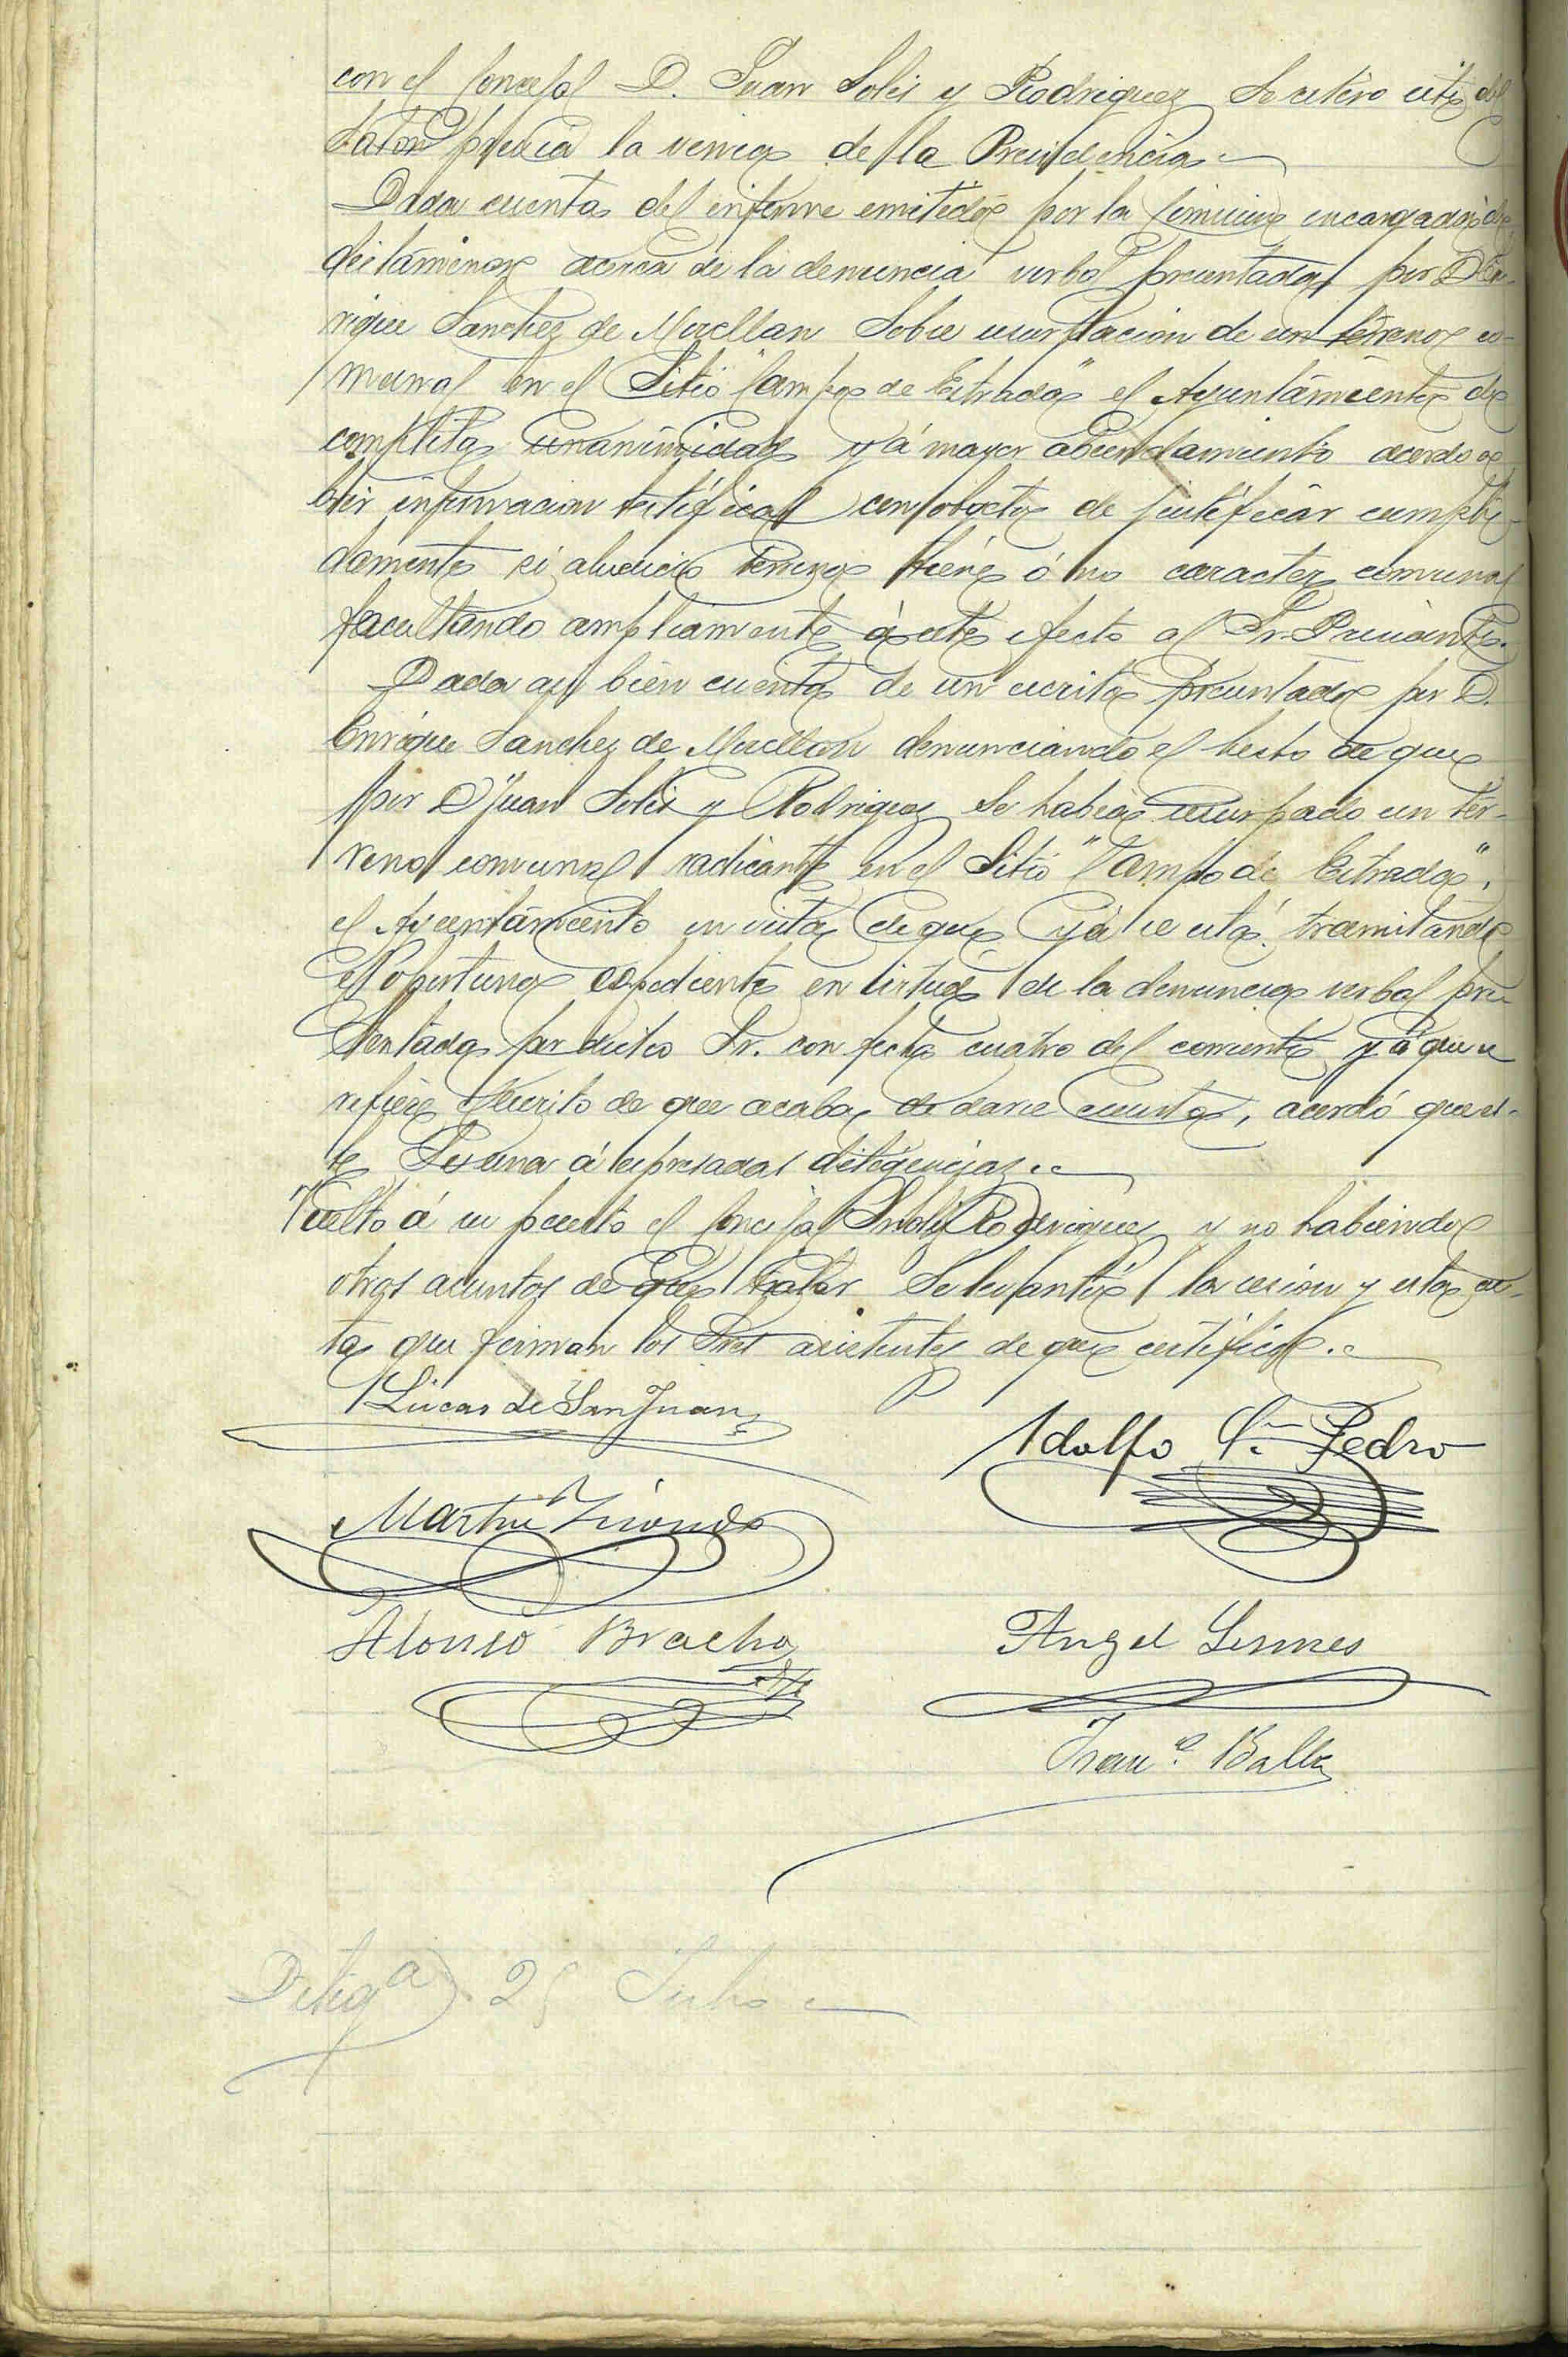 con el Concejal D. Juan Solis y Rodriguez se retiro este del
Salon previa la venia de la Presidencia.
Dada cuenta del informe emitido por la Comision encargada de
dictaminar acerca de la denuncia verbal presentada por D En-
rique Sanchez de Movellan sobre usurpacion de un terreno co-
munal en el Sitio "Campo de Estrada" el Ayuntamiento de
completa unanimidad y á mayor abundamiento acordo a-
brir informacion testifical con objeto de justificar cumpli-
damente si aludido terreno tiene ó no caracter comunal
facultando ampliamente á este efecto al Sr. Presidente.
Dada asi bien cuenta de un escrito presentado por D.
Enrique Sanchez de Movellan denunciando el hecho de que
por D Juan Solis y Rodriguez se habia usurpado un ter-
reno comunal radicante en el Sitio "Campo de Estrada",
el Ayuntamiento en vista de que ya se está tramitando
el oportuno expediente en virtud de la denuncia verbal pre-
sentada por dicho Sr. con fecha cuatro del corriente y á que se
refiere el escrito de que acaba de darse cuenta, acordó que es-
te se una á expresadas diligencias.
Vuelto á su puesto el Concejal Sr Solis Rodriguez y no habiendo
otros asuntos de que tratar se levantó la sesion y esta ac-
ta que firman los Sres asistentes de que certifico.
Lucas de San Juan
Adolfo S. Pedro
Martin
Alonso Bracho
Angel Lesmes
Franco. Balbas
Diliga. 25 Julio